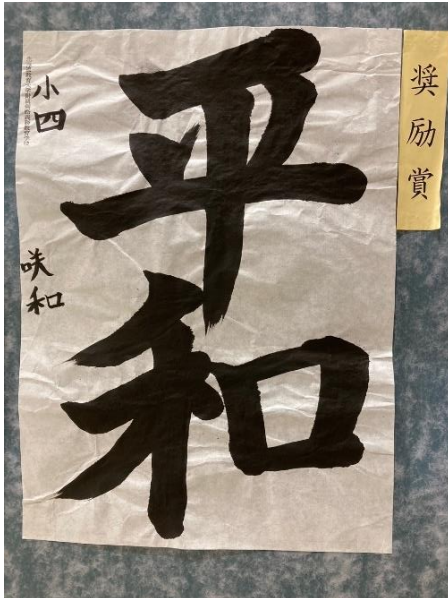 奨励賞
平和
小四
咲和